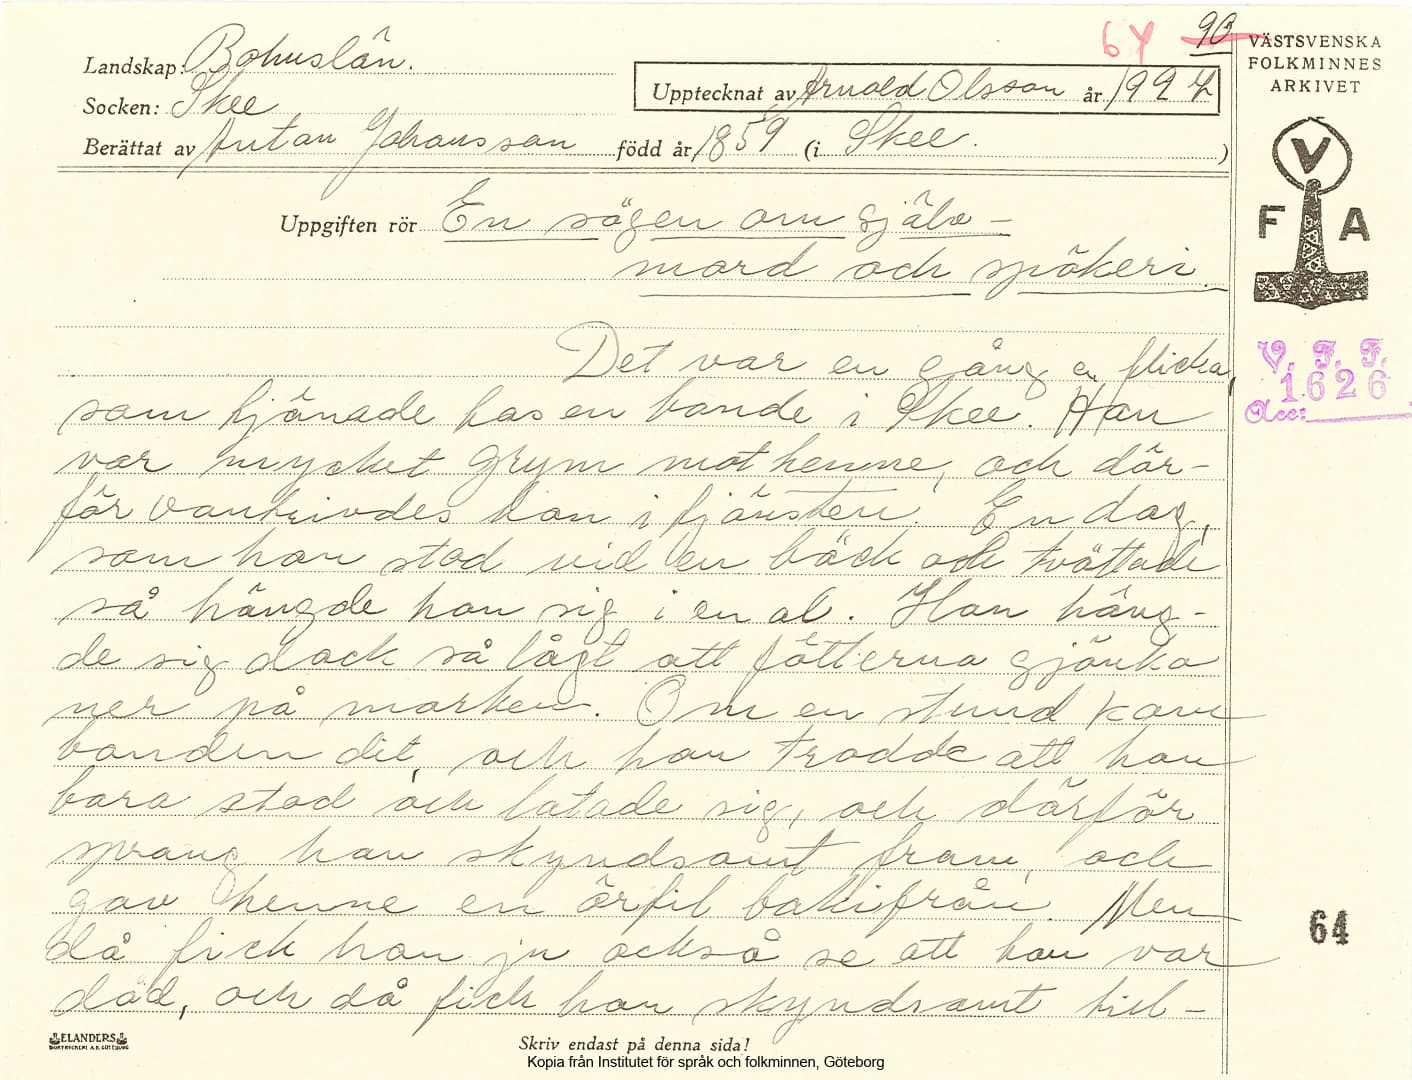 64 90
Landskap: Bohuslän.
Socken: Skee
Upptecknat av Arnold Olsson år 1927
Berättat av Anton Johansson född år 1859 (i Skee. )
VÄSTSVENSKA
FOLKMINNES
ARKIVET
V
F A
Uppgiften rör En sägen om själv-
mord och spökeri.
V. F. F.
1626
Acc:
Det var en gång en flicka,
som tjänade hos en bonde i Skee. Han
var mycket grym mot henne, och där-
för vantrivdes hon i tjänsten. En dag,
som hon stod vid en bäck och tvättade
så hängde hon sig i en al. Hon häng-
de sig dock så lågt att fötterna gjönko
ner på marken. Om en stund kom
bonden dit, och han trodde att hon
bara stod och latade sig, och därför
sprang han skyndsamt fram, och
gav henne en örfil bakifrån. Men
då fick han ju också se att hon var
död, och då fick han skyndsamt till-
64
ELANDERS
BOKTRYCKERI A.B. GÖTEBORG
Skriv endast på denna sida!
Kopia från Institutet för språk och folkminnen, Göteborg